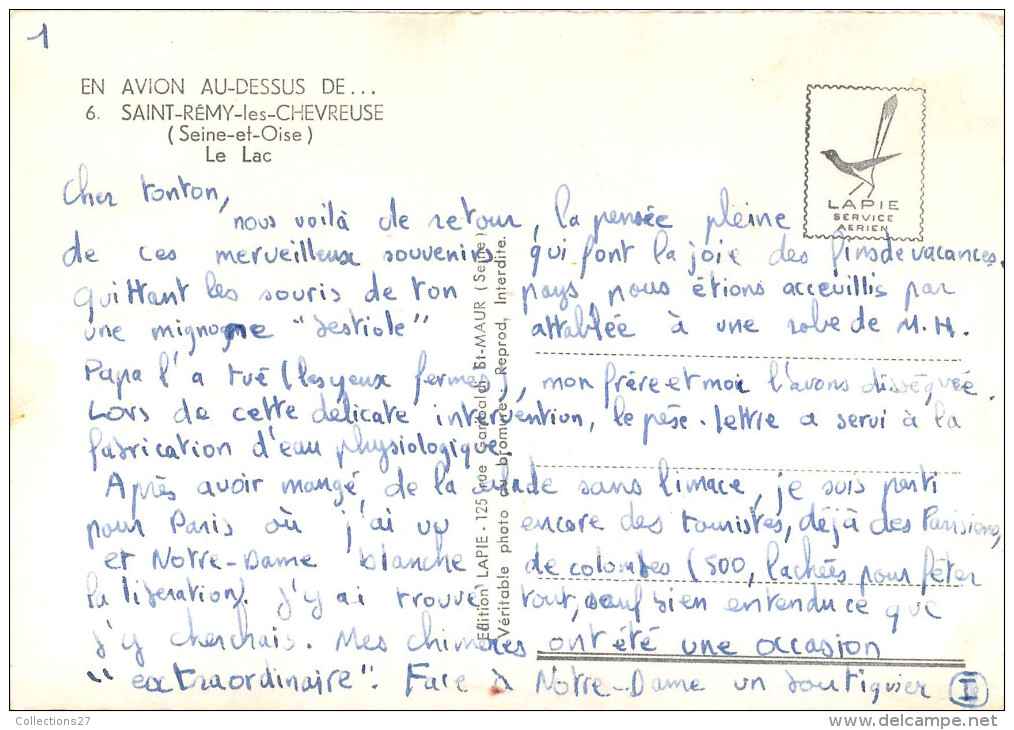 1
EN AVION AU-DESSUS DE...
6. SAINT-RÉMY-les-CHEVREUSE
(Seine-et-Oise)
Le Lac
LAPIE
SERVICE
AERIEN
Cher tonton,
nous voilà de retour, la pensée pleine
de ces merveilleux souvenirs qui font la joie des fins de vacances.
Quittant les souris de ton pays, nous étions acceuillis par
une mignogne "bestiole" attablée à une robe de M.H.
Papa l'a tué (les yeux fermés), mon frère et moi l'avons disséquée.
Lors de cette délicate intervention, le pèse-lettre a servi à la
fabrication d'eau physiologique.
Après avoir mangé de la salade sans limace, je suis parti
pour Paris où j'ai vu encore des touristes, déjà des Parisiens,
et Notre-Dame blanche de colombes (500, lachées pour fêter
la liberation). J'y ai trouvé tout, sauf bien entendu ce que
j'y cherchais. Mes chimères ont été une occasion
"extraordinaire". Face à Notre-Dame un boutiquier I
Edition LAPIE - 125, rue Garibaldi St-MAUR (Seine)
Véritable photo au bromure - Reprod. Interdite.
Collections27
www.delcampe.net